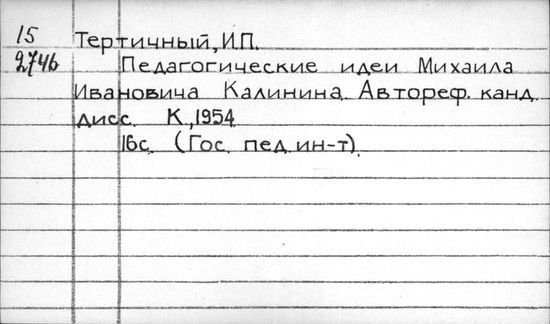 15 Тертичный, И.П.
2746 Педагогические идеи Михаила
Ивановича Калинина. Автореф. канд.
дисс. К., 1954.
16с. (Гос. пед. ин-т).